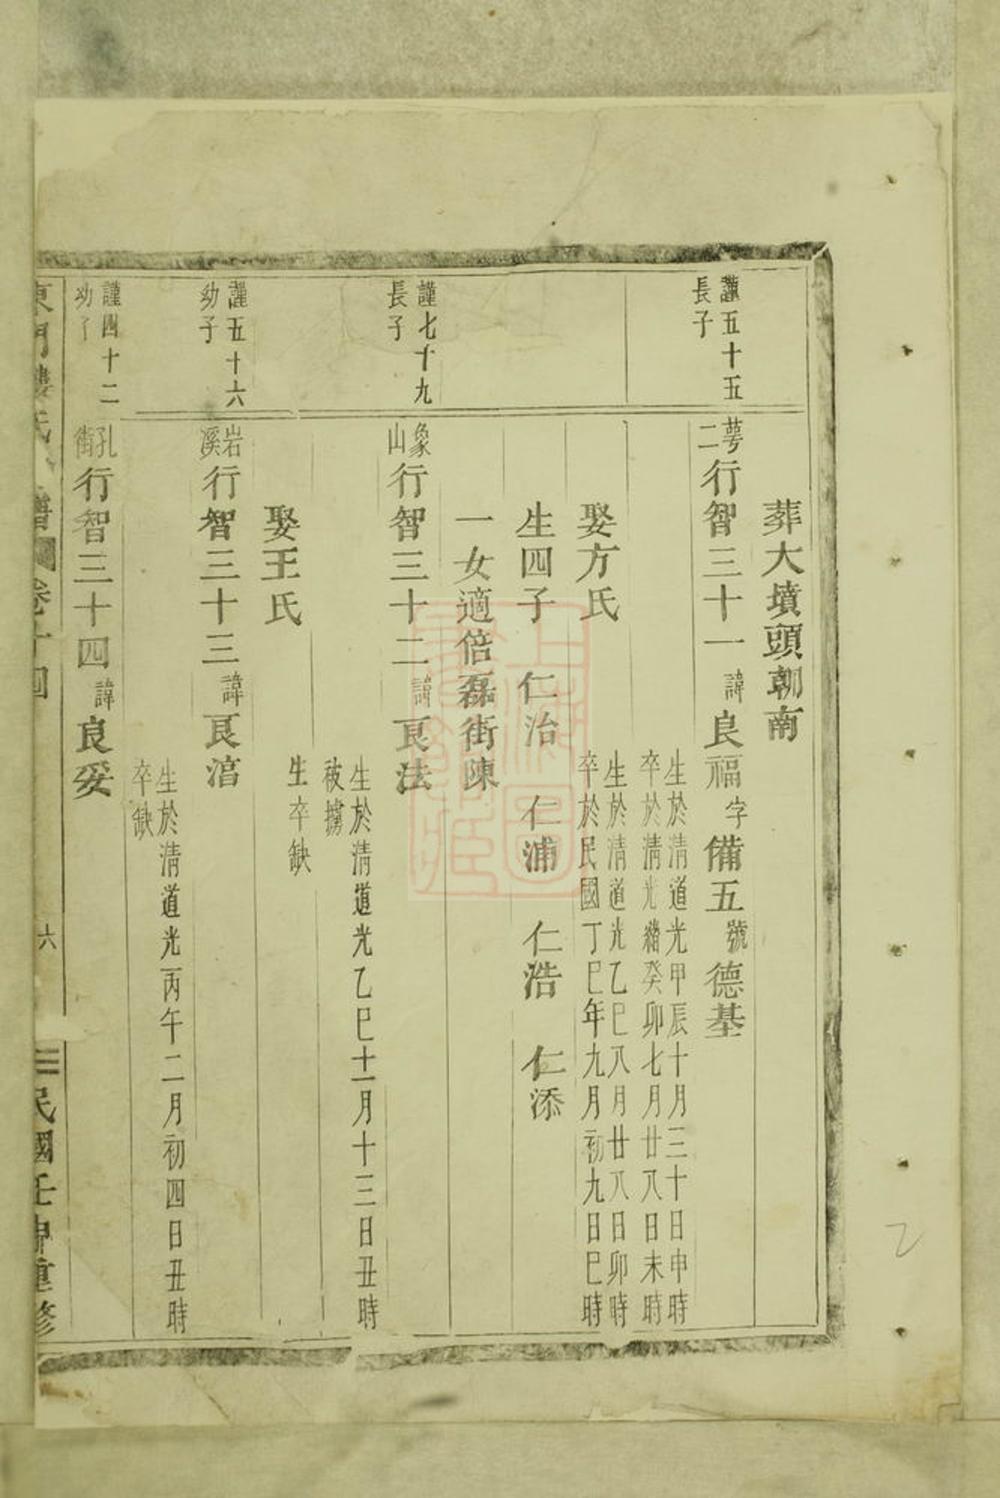 葬大墳頭朝南
謹五十五
長子
萼二
行智三十一 諱良福字備五號德基
生於清道光甲辰十月三十日申時
卒於清光緒癸卯七月廿八日未時
娶方氏
生於清道光乙巳八月廿八日卯時
卒於民國丁巳年九月初九日巳時
生四子 仁治 仁浦 仁浩 仁添
一女適倍磊街陳
謹七十九
長子
象山
行智三十二 諱良法
生於清道光乙巳十一月十三日丑時
被擄
娶王氏
生卒缺
謹五十六
幼子
岩溪
行智三十三 諱良㴖
生於清道光丙午二月初四日丑時
卒缺
謹四十二
幼子
孔街
行智三十四 諱良妥
東門 氏 譜 卷十四 六 民國壬申重修